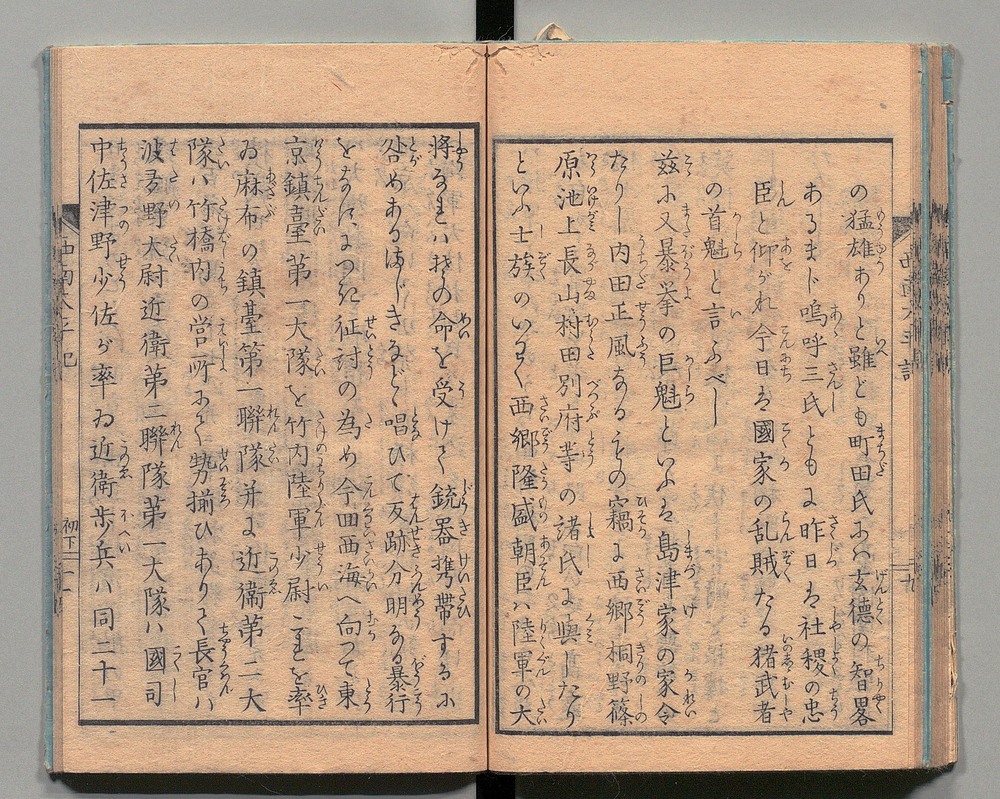 の猛雄ありと雖ども町田氏にハ玄德の智畧
あるまじ嗚呼三氏ともに昨日は社稷の忠
臣と仰がれ今日は國家の乱賊たる猪武者
の首魁と言ふべし
茲に又暴挙の巨魁といふは島津家の家令
たりし内田正風なるもの竊に西郷桐野篠
原池上長山村田別府等の諸氏に與したり
といふ士族のいわく西郷隆盛朝臣ハ陸軍の大
将なれハ其の命を受けて銃器携帯するに
咎めある海じきなどゝ唱ひて反跡分明なる暴行
をなすによつて征討の為め今回西海へ向つて東
京鎮臺第一大隊を竹内陸軍少尉これを率
ゐ麻布の鎮臺第一聯隊并に近衞第二大
隊ハ竹橋内の営所にて勢揃ひありて長官ハ
波多野大尉近衛第二聯隊第一大隊ハ國司
中佐津野少佐が率ゐ近衛歩兵ハ同二十一
初下